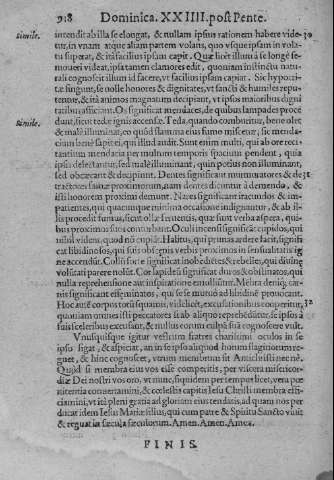 918 Dominica. XXIIII. post Pente.
Simile. intendit ab illa se elongat, & nullam ipsius rationem habere vide 30
tur, in vnam atque aliam partem volans, quo vsque ipsum in vola
tu superat, & ita facilius ipsam capit. Quæ licet illum à longè se
moueri videat, ipsa tamen clamores edit, quoniam instinctu natu
rali cognoscit illum id facere, vt facilius ipsam capiat. Sic hypocri
tæ singunt, se nolle honores & dignitates, vt sancti & humiles repu
tentur, & ita animos magnatum decipiunt, vt ipsos maioribus digni
tatibus afficiant. Os significat mendaces, de quibus lampades procé
Simile. dunt, sicut tedæ ignis accensæ. Teda, quando comburitur, bene olet
& malè illuminat, eo quòd flamma eius fumo miscetur, sic menda
cium benè sapit ei, qui illud audit. Sunt enim multi, qui ab ore
tantium mendacia per multum temporis spacium pendent, quia
ipsis delectantur, sed malè illuminant, quin potius non illuminant,
sed obcæcant & decipiunt. Dentes significant murmuratores & de 31
tractores famæ proximorum, nam dentes dicuntur à demendo, &
isti honorem proximi demunt. Nares significant iracundos & im-
patientes, qui quacunque minima occasione indignantur, & ab il-
lis procedit fumus, sicut ollæ feruentis, quæ sunt verba aspera, quibus
proximos suos conturbant. Oculi incensi significāt cupidos, qui
nihil vident, quod nō cupiāt. Halitus, qui prunas ardere facit, signifi
cat libidinosos, qui suis obscœnis verbis proximos in sensualitatis ig
ne accendūt. Collū fortè significat inobedietes & rebelles, qui diuinę
volūtati parere nolūt. Cor lapideū significat duros & obstinatos, qui
nulla reprehensione aut inspiratione emolliūtur. Mēbra deniq; car-
nis significant effœminatos, qui se se mutuò ad libidinē prouocant.
Hoc autē corpus totū squamis, videlicet, excusationibus cooperitur, 32
quoniam omnes isti peccatores si ab aliquo reprehēdūtur, se ipsos à
suis sceleribus excusant, & nullus eorum culpā suā cognoscere vult.
Vnusquisque igitur vestrum fratres charissimi oculos in se
ipso figat, & aspiciat, an in se ipso aliquod horum flagitiorum re-
guet, & hinc cognoscet, vtrum membrum sit Antichristi nec ne.
Quòd si membra eius vos esse comperitis, per viscera misericor-
diæ Dei nostri vos oro, vt nunc, siquidem per tempus licet, vera pœ
nitentia conuertamini, & cœlestis capitis Iesu Christi membra effi-
ciamini, vt ita pleni gratia ad gloriam eius tendatis, ad quam nos per
ducat idem Iesus Mariæ filius, qui cum patre & Spiritu Sancto viuit
& regnat in sæcula sæculorum. Amen. Amen. Amen.
FINIS.